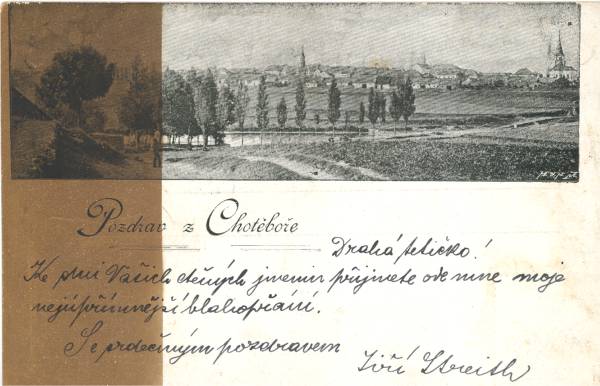 Pozdrav z Chotěboře
Drahá tetičko!
Ke dni Vašich ctěných jmenin přijmete ode mne moje
nejúpřímnější blahopřání.
Se srdečným pozdravem
Jiří Streith